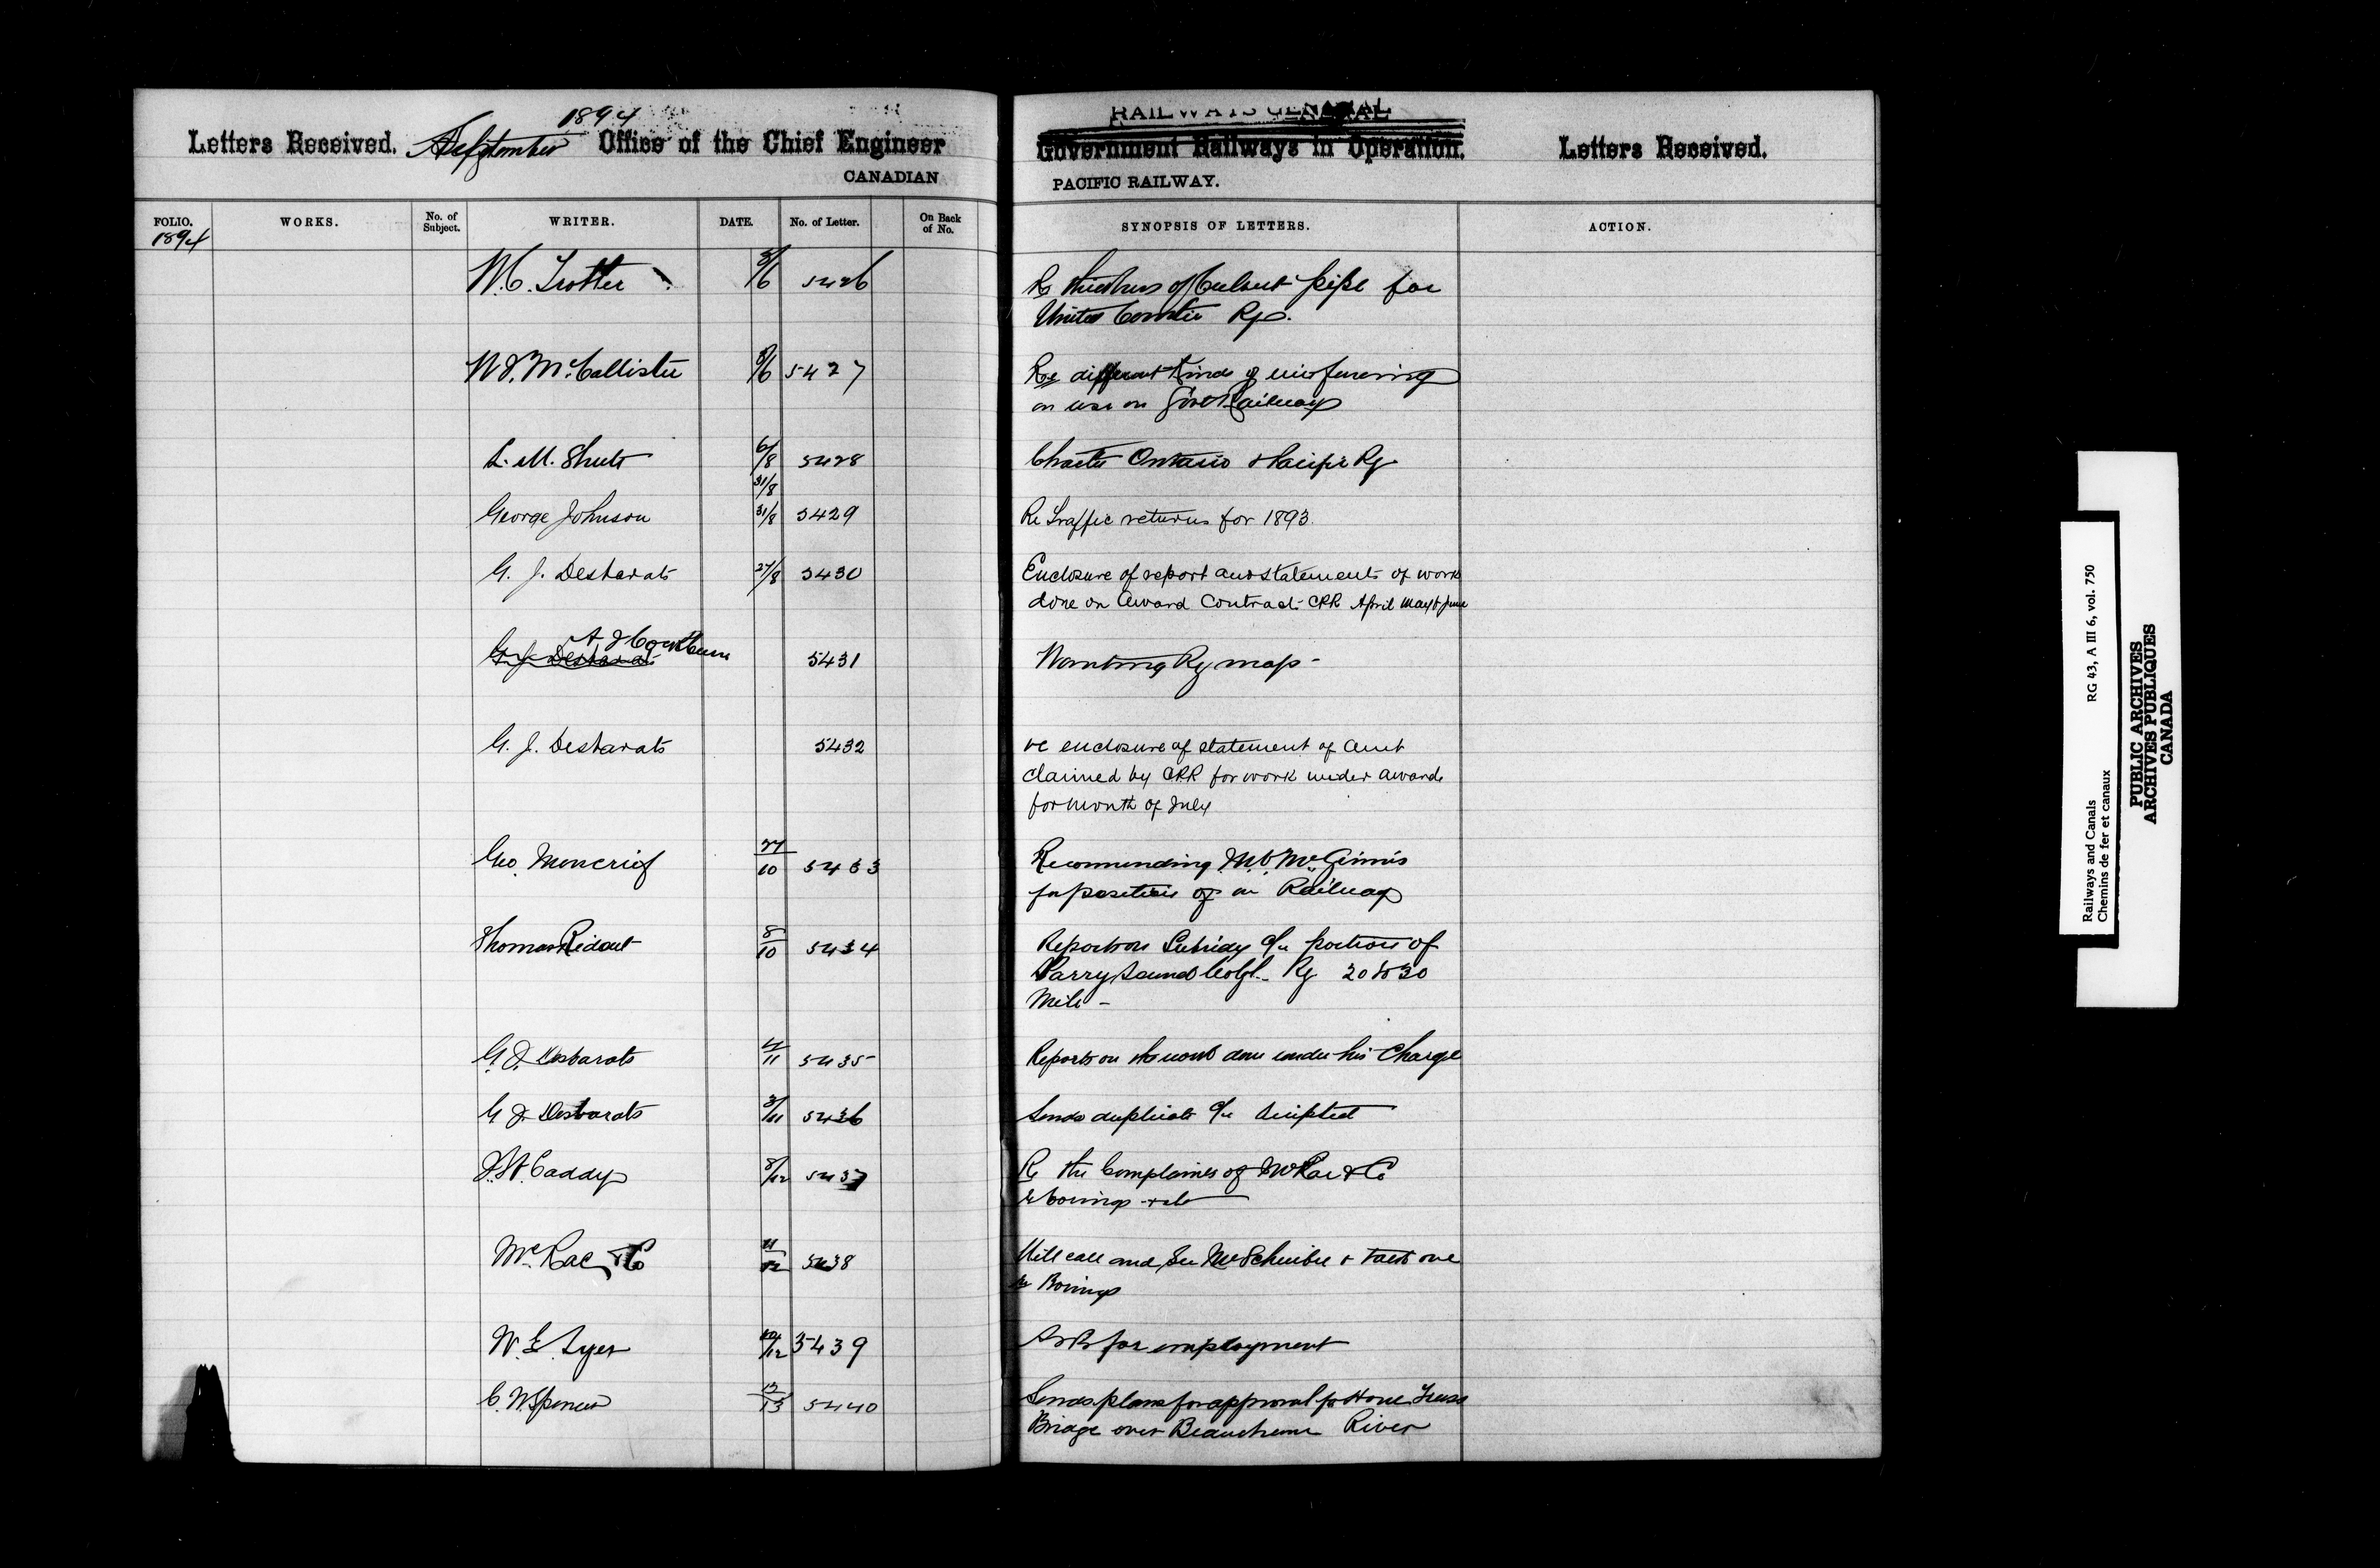 1894
Letters Received. September Office of the Chief Engineer
CANADIAN
RAILWAYS GENERAL
Government Railways in Operation. Letters Received.
PACIFIC RAILWAY.
FOLIO. WORKS. No. of Subject. WRITER. DATE. No. of Letter. On Back of No. SYNOPSIS OF LETTERS. ACTION.
1894
W.C. Trotter 5/6 5426 Re thickness of Culvert pipe for
United Counties Ry.
W.J. McCallister 5/6 5427 Re different kinds of wire fencing
in use on Govt Railways
L. M. Shute 6/8 5428 Charter Ontario & Pacific Ry
31/8
George Johnson 31/8 5429 Re Traffic returns for 1893.
G. J. Desbarats 27/8 5430 Enclosure of report and statements of work
done on Award Contract CPR April May & June
G. J. Desbarats A J Cockburn 5431 Wanting Ry map-
G. J. Desbarats 5432 re enclosure of statement of amt
claimed by CPR for work under award
for month of July
Geo. Moncrief 27/10 5433 Recommending McGinnis
for position on Railway
Thomas Ridout 8/10 5434 Report on Subsidy portion of
Parry Sound Colzt. Ry 20 to 30
Mile -
G. J. Desbarats 4/11 5435 Reports on the work done under his Charge
G J. Desbarats 3/11 5436 Sends duplicate
J. St. Caddy 8/12 5437 Re the Complaints of McRae & Co
re borings
McRae & Co 11/12 5438 Will call and see Mr Schreiber & talk over
re Borings
W. E. Tyer 10/12 5439 Asks for employment
C. W. Spencer 12/13 5440 Sends plans for approval for Howe Truss
Bridge over Beauchene River
Railways and Canals RG 43, A III 6, vol. 750
Chemins de fer et canaux
PUBLIC ARCHIVES
ARCHIVES PUBLIQUES
CANADA